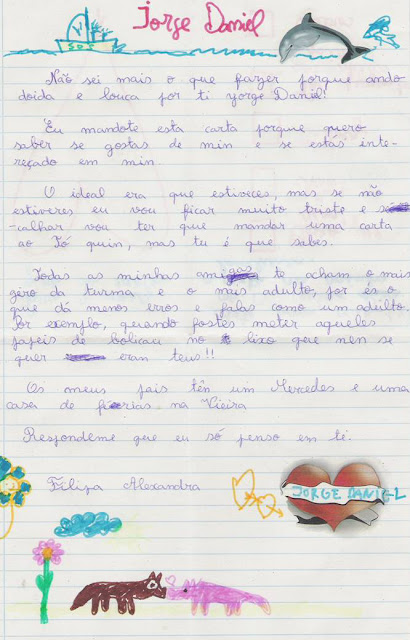 Jorge Daniel
SOS
Não sei mais o que fazer porque ando
doida e louca por ti yorge Daniel!
Eu mandote esta carta porque quero
saber se gostas de min e se estás inte-
reçado em min
O ideal era que estiveces, mas se não
estiveres eu vou ficar muito triste e
-calhar vou ter que mandar uma carta
ao Jó quin, mas tu é que sabes.
Todas as minhas amigas te acham o mais
giro da turma e o mais adulto, por és o
que dá menos erros e falas como um adulto.
Por exemplo, quando fostes meter aqueles
papeis de bolicau no lixo que nen se
quer eran teus!!
Os meus pais tên um Mercedes e uma
casa de férias na Vieira
Respondeme que eu só penso em ti.
Filipa Alexandra
JORGE DANIE-L